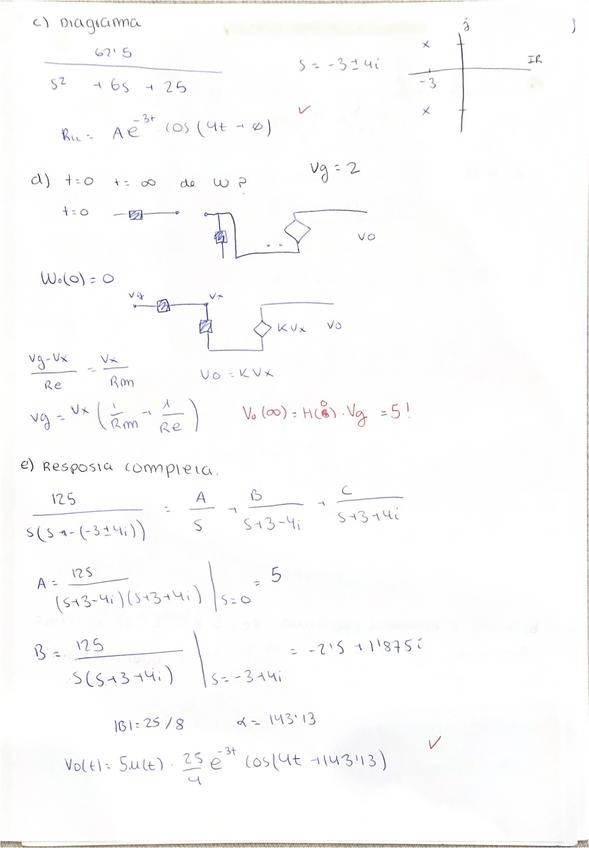 c) Diagrama
62'5
s² + 6s + 25
s = -3 ± 4i
j
x
IR
-3
x
RLL = Ae^-3t cos(4t + ø) ✓
d) t=0 t=∞ de W? Vg = 2
t=0
VO
Wo(0) = 0
Vg Vx
KVx VO
Vg-Vx / Re = Vx / Rm VO = KVx
Vg = Vx (1/Rm + 1/Re) Vo(∞) = H(0)·Vg = 5!
e) Resposta completa.
125 / s(s+-(-3±4i)) = A/s + B/s+3-4i + C/s+3+4i
A = 125 / (s+3-4i)(s+3+4i) | s=0 = 5
B = 125 / s(s+3+4i) | s=-3+4i = -2'5 + 1'875i
|B| = 25/8 α = 143'13
Vo(t) = 5u(t) · 25/4 e^-3t cos(4t + 143'13) ✓